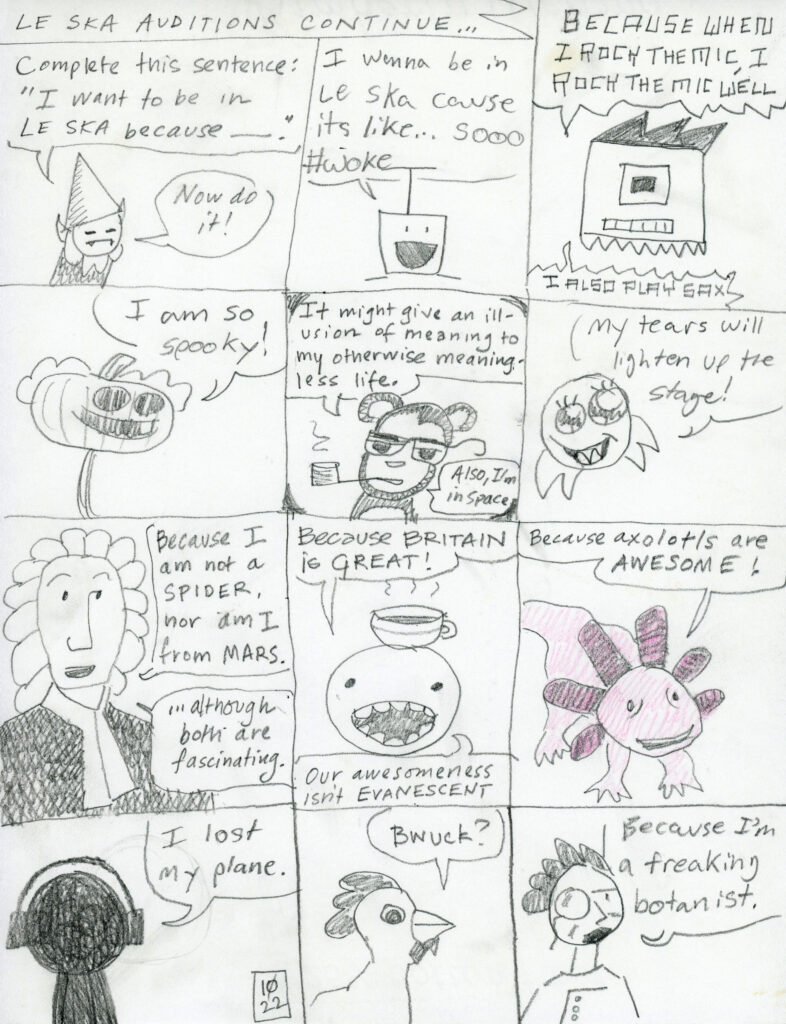 LE SKA AUDITIONS CONTINUE...
Complete this sentence:
"I want to be in
LE SKA because ___."
Now do
it!
I wanna be in
Le Ska cause
its like... sooo
#woke
BECAUSE WHEN
I ROCK THE MIC, I
ROCK THE MIC WELL
I ALSO PLAY SAX
I am so
spooky!
It might give an ill-
usion of meaning to
my otherwise meaning-
less life.
Also, I'm
in space
My tears will
lighten up the
stage!
Because I
am not a
SPIDER,
nor am I
from MARS.
...although
both are
fascinating.
Because BRITAIN
is GREAT!
Our awesomeness
isn't EVANESCENT
Because axolotls are
AWESOME!
I lost
my plane.
10
22
Bwuck?
Because I'm
a freaking
botanist.